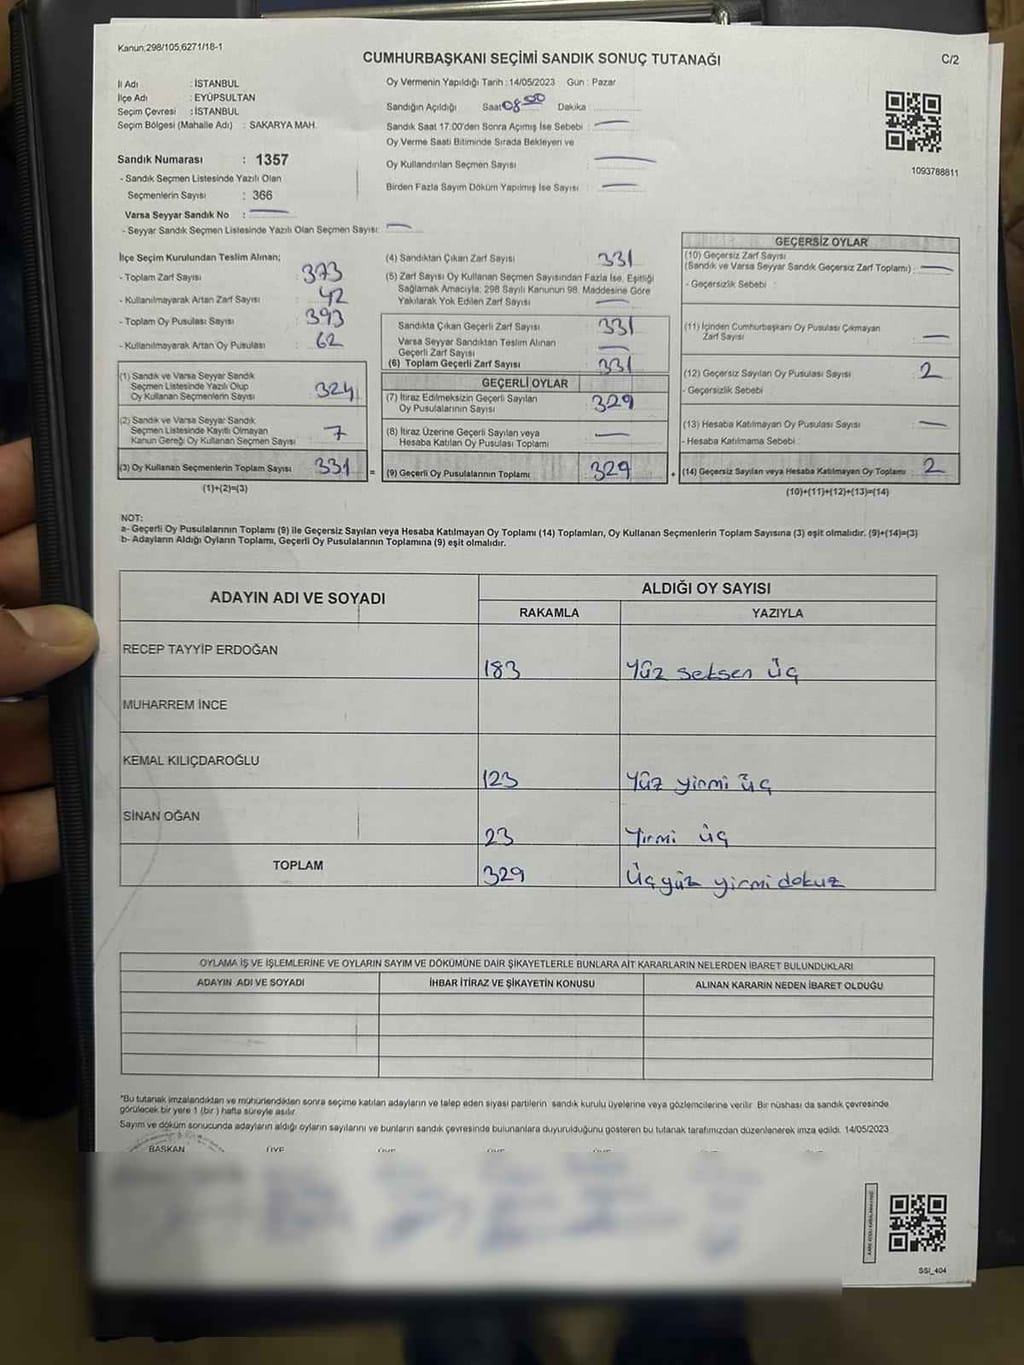 Kanun:298/105,6271/18-1
CUMHURBAŞKANI SEÇİMİ SANDIK SONUÇ TUTANAĞI
C/2
İl Adı : İSTANBUL
İlçe Adı : EYÜPSULTAN
Seçim Çevresi : İSTANBUL
Seçim Bölgesi (Mahalle Adı) : SAKARYA MAH.
Sandık Numarası : 1357
- Sandık Seçmen Listesinde Yazılı Olan
Seçmenlerin Sayısı : 366
Varsa Seyyar Sandık No :
- Seyyar Sandık Seçmen Listesinde Yazılı Olan Seçmen Sayısı:
Oy Vermenin Yapıldığı Tarih : 14/05/2023 Gün : Pazar
Sandığın Açıldığı Saat 08 00 Dakika
Sandık Saat 17:00'den Sonra Açımış İse Sebebi :
Oy Verme Saati Bitiminde Sırada Bekleyen ve
Oy Kullandırılan Seçmen Sayısı
Birden Fazla Sayım Döküm Yapılmış İse Sayısı :
1093788811
İlçe Seçim Kurulundan Teslim Alınan;
- Toplam Zarf Sayısı : 373
- Kullanılmayarak Artan Zarf Sayısı : 42
- Toplam Oy Pusulası Sayısı : 393
- Kullanılmayarak Artan Oy Pusulası : 62
(1) Sandık ve Varsa Seyyar Sandık
Seçmen Listesinde Yazılı Olup
Oy Kullanan Seçmenlerin Sayısı 324
(2) Sandık ve Varsa Seyyar Sandık
Seçmen Listesinde Kayıtlı Olmayan
Kanun Gereği Oy Kullanan Seçmen Sayısı 7
(3) Oy Kullanan Seçmenlerin Toplam Sayısı 331
(1)+(2)=(3)
=
(4) Sandıktan Çıkan Zarf Sayısı 331
(5) Zarf Sayısı Oy Kullanan Seçmen Sayısından Fazla İse, Eşitliği
Sağlamak Amacıyla; 298 Sayılı Kanunun 98. Maddesine Göre
Yakılarak Yok Edilen Zarf Sayısı
Sandıkta Çıkan Geçerli Zarf Sayısı 331
Varsa Seyyar Sandıktan Teslim Alınan
Geçerli Zarf Sayısı
(6) Toplam Geçerli Zarf Sayısı 331
GEÇERLİ OYLAR
(7) İtiraz Edilmeksizin Geçerli Sayılan
Oy Pusulalarının Sayısı 329
(8) İtiraz Üzerine Geçerli Sayılan veya
Hesaba Katılan Oy Pusulası Toplamı
(9) Geçerli Oy Pusulalarının Toplamı 329
+
GEÇERSİZ OYLAR
(10) Geçersiz Zarf Sayısı
(Sandık ve Varsa Seyyar Sandık Geçersiz Zarf Toplamı) :
- Geçersizlik Sebebi :
(11) İçinden Cumhurbaşkanı Oy Pusulası Çıkmayan
Zarf Sayısı
(12) Geçersiz Sayılan Oy Pusulası Sayısı 2
- Geçersizlik Sebebi
(13) Hesaba Katılmayan Oy Pusulası Sayısı
- Hesaba Katılmama Sebebi :
(14) Geçersiz Sayılan veya Hesaba Katılmayan Oy Toplamı : 2
(10)+(11)+(12)+(13)=(14)
NOT:
a- Geçerli Oy Pusulalarının Toplamı (9) ile Geçersiz Sayılan veya Hesaba Katılmayan Oy Toplamı (14) Toplamları, Oy Kullanan Seçmenlerin Toplam Sayısına (3) eşit olmalıdır. (9)+(14)=(3)
b- Adayların Aldığı Oyların Toplamı, Geçerli Oy Pusulalarının Toplamına (9) eşit olmalıdır.
ADAYIN ADI VE SOYADI
ALDIĞI OY SAYISI
RAKAMLA YAZIYLA
RECEP TAYYİP ERDOĞAN 183 Yüz seksen üç
MUHARREM İNCE
KEMAL KILIÇDAROĞLU 123 Yüz yirmi üç
SİNAN OĞAN 23 Yirmi üç
TOPLAM 329 Üçyüz yirmi dokuz
OYLAMA İŞ VE İŞLEMLERİNE VE OYLARIN SAYIM VE DÖKÜMÜNE DAİR ŞİKAYETLERLE BUNLARA AİT KARARLARIN NELERDEN İBARET BULUNDUKLARI
ADAYIN ADI VE SOYADI İHBAR İTİRAZ VE ŞİKAYETİN KONUSU ALINAN KARARIN NEDEN İBARET OLDUĞU
*Bu tutanak imzalandıktan ve mühürlendikten sonra seçime katılan adayların ve talep eden siyasi partilerin sandık kurulu üyelerine veya gözlemcilerine verilir. Bir nüshası da sandık çevresinde
görülecek bir yere 1 (bir) hafta süreyle asılır.
Sayım ve döküm sonucunda adayların aldığı oyların sayılarını ve bunların sandık çevresinde bulunanlara duyurulduğunu gösteren bu tutanak tarafımızdan düzenlenerek imza edildi. 14/05/2023
BAŞKAN ÜYE
SSI_404